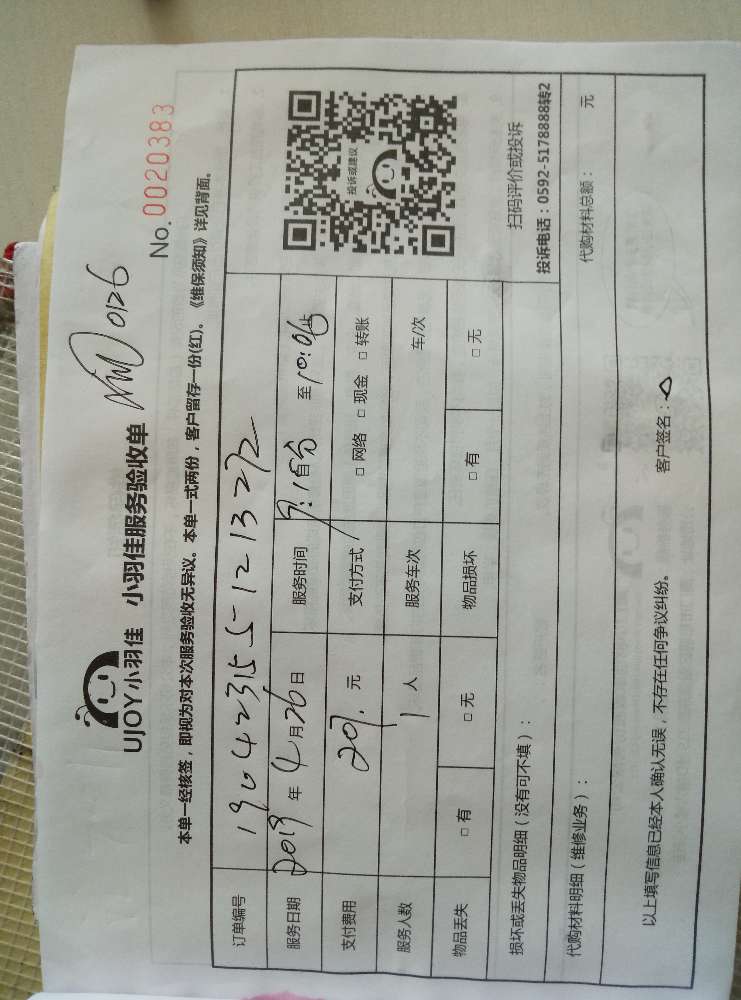 UJOY小羽佳 小羽佳服务验收单
0126
No. 0020383
本单一经核签，即视为对本次服务验收无异议。本单一式两份，客户留存一份(红)。《维保须知》详见背面。
订单编号 190423155121322
服务日期 2019 年 4 月 26 日 服务时间 至
支付费用 元 支付方式 □ 网络 □ 现金 □ 转账
服务人数 1 人 服务车次 车/次
物品丢失 □ 有 □ 无 物品损坏 □ 有 □ 无
投诉或建议
扫码评价或投诉
投诉电话：0592-5178888转2
损坏或丢失物品明细（没有可不填）：
代购材料明细（维修业务）： 代购材料总额： 元
以上填写信息已经本人确认无误，不存在任何争议纠纷。 客户签名：